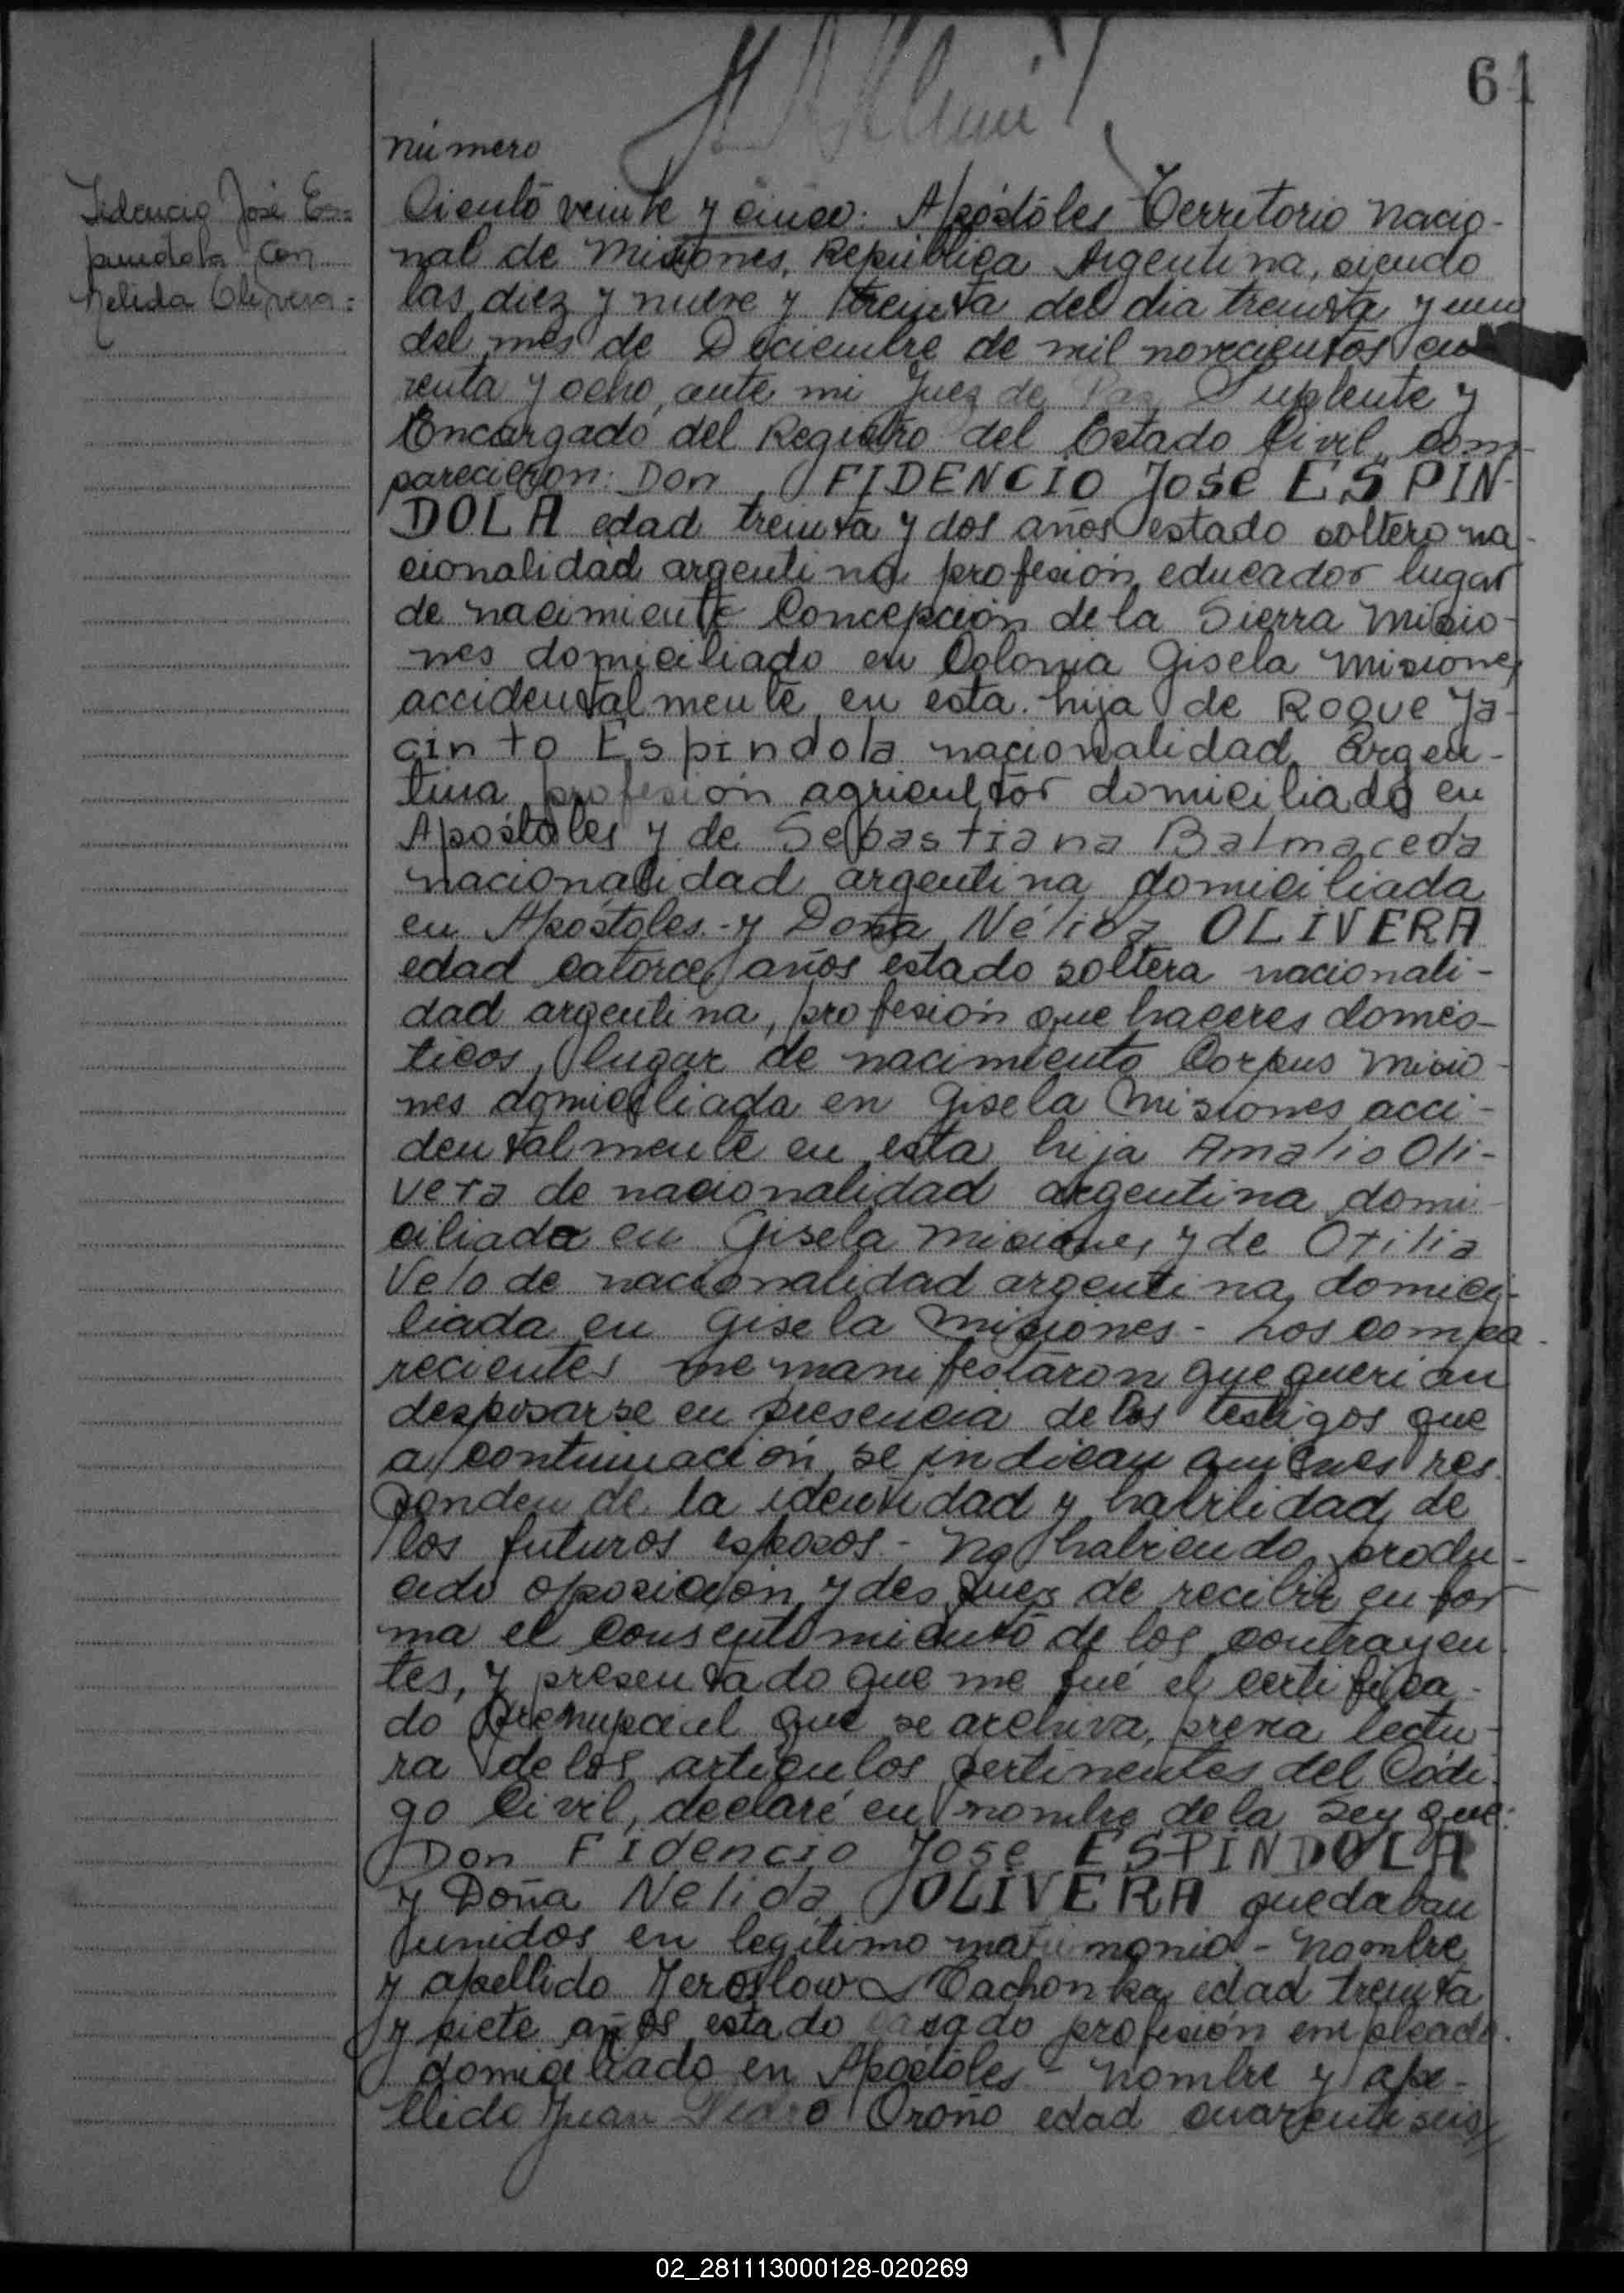 61
Fidencio José Es=
pindola con
Nelida Olivera=
número
Ciento veinte y cinco: Apóstoles Territorio Nacio-
nal de Misiones, República Argentina, siendo
las diez y nueve y treinta del dia treinta y uno
del mes de Diciembre de mil novecientos cua
renta y ocho, ante mi Juez de Paz Suplente y
Encargado del Registro del Estado Civil, com-
parecieron: Don FIDENCIO José ESPIN-
DOLA edad treinta y dos años estado soltero na-
cionalidad argentina profesión educador lugar
de nacimiento Concepción de la Sierra Misio-
nes domiciliado en Colonia Gisela Misiones
accidentalmente en esta. hijo de Roque Ja-
cinto Espindola nacionalidad Argen-
tina profesión agricultor domiciliado en
Apóstoles y de Sebastiana Balmaceda
nacionalidad argentina domiciliada
en Apóstoles.- y Doña Nélida OLIVERA
edad catorce años estado soltera nacionali-
dad argentina, profesión que haceres domés-
ticos, lugar de nacimiento Corpus Misio-
nes domiciliada en Gisela Misiones acci-
dentalmente en esta hija Amalio Oli-
vera de nacionalidad argentina domi-
ciliada en Gisela Misiones y de Otilia
Velo de nacionalidad argentina domici-
liada en Gisela Misiones - Los compa-
recientes me manifestaron que querian
desposarse en presencia de los testigos que
a continuación se indican quienes res
ponden de la identidad y habilidad de
los futuros esposos.- No habiendo produ-
cido oposición y despues de recibir en for
ma el consentimiento de los contrayen
tes, y presentado que me fué el certifica-
do Prenupcial que se archiva, previa lectu-
ra de los artículos pertinentes del Códi-
go Civil, declaré en nombre de la Ley que:
Don Fidencio Jose ESPINDOLA
y Doña Nelida OLIVERA quedaban
unidos en legítimo matrimonio - Nombre
y apellido Jeroslow Cachonka edad treinta
y siete años estado casado profesión empleado.
domiciliado en Apóstoles - Nombre y ape-
llido Juan Pedro Orono edad cuarenta seis
02_281113000128-020269